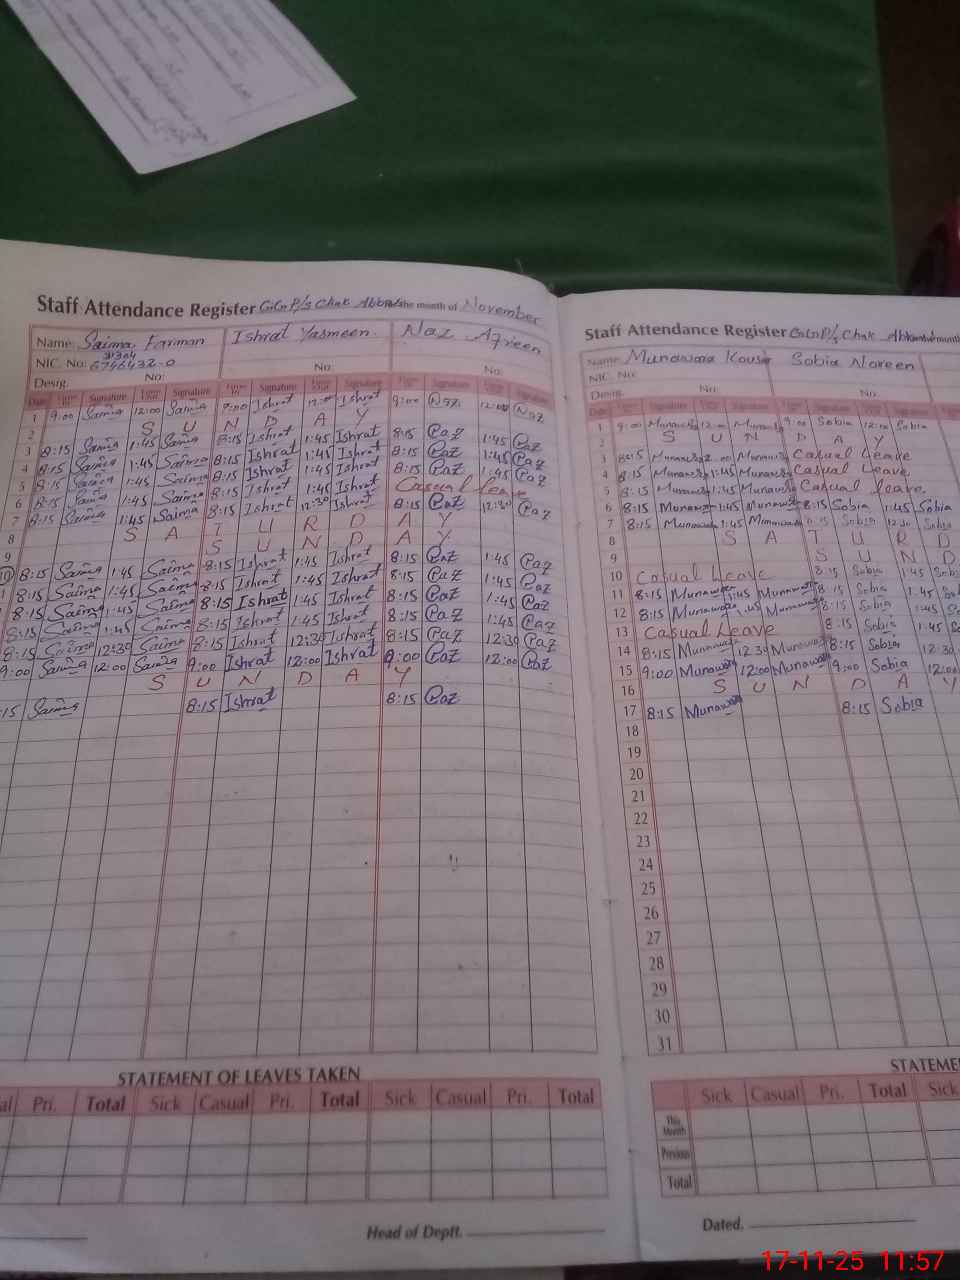 Staff Attendance Register GGP/S Chak Abbas the month of November
Name: Saima Farman Ishrat Yasmeen. Naz Afreen
31304
NIC. No: 6746432-0 No: No:
Desig. No:
Date Signature Signature Signature Signature
1 9:00 Saima 12:00 Saima 9:00 Ishrat 12:00 Ishrat 9:00 Naz 12:00 Naz
2 S U N D A Y
3 8:15 Saima 1:45 Saima 8:15 Ishrat 1:45 Ishrat 8:15 1:45
4 8:15 Saima 1:45 Saima 8:15 Ishrat 1:45 Ishrat 8:15 1:45
5 8:15 Saima 1:45 Saima 8:15 Ishrat 1:45 Ishrat 8:15 1:45
6 8:15 Saima 1:45 Saima 8:15 Ishrat 1:45 Ishrat Casual leave
7 8:15 Saima 1:45 Saima 8:15 Ishrat 12:30 Ishrat 8:15 12:30
8 S A T U R D A Y
9 S U N D A Y
10 8:15 Saima 1:45 Saima 8:15 Ishrat 1:45 Ishrat 8:15 1:45
8:15 Saima 1:45 Saima 8:15 Ishrat 1:45 Ishrat 8:15 1:45
8:15 Saima 1:45 Saima 8:15 Ishrat 1:45 Ishrat 8:15 1:45
8:15 Saima 1:45 Saima 8:15 Ishrat 1:45 Ishrat 8:15 1:45
8:15 Saima 12:30 Saima 8:15 Ishrat 12:30 Ishrat 8:15 12:30
9:00 Saima 12:00 Saima 9:00 Ishrat 12:00 Ishrat 9:00 12:00
S U N D A Y
:15 Saima 8:15 Ishrat 8:15
STATEMENT OF LEAVES TAKEN
Pri. Total Sick Casual Pri. Total Sick Casual Pri. Total
Head of Deptt.
Staff Attendance Register GGP/S Chak Abbas month
Name: Munawara Kousar Sobia Noreen
NIC. No: No:
Desig. No.
1 9:00 Munawara 12:00 Munawara 9:00 Sobia 12:00 Sobia
2 S U N D A Y
3 8:15 Munawara Munawara Casual Leave
4 8:15 Munawara 1:45 Munawara Casual Leave
5 8:15 Munawara 1:45 Munawara Casual leave.
6 8:15 Munawara 1:45 Munawara 8:15 Sobia 1:45 Sobia
7 8:15 Munawara 1:45 Munawara 8:15 Sobia 12:30 Sobia
8 S A T U R D
9 S U N D
10 Casual Leave 8:15 Sobia 1:45
11 8:15 Munawara 1:45 Munawara 8:15 Sobia 1:45
12 8:15 Munawara 1:45 Munawara 8:15 Sobia 1:45
13 Casual Leave 8:15 Sobia 1:45
14 8:15 Munawara 12:30 Munawara 8:15 Sobia 12:30
15 9:00 Munawara 12:00 Munawara 9:00 Sobia 12:00
16 S U N D A Y
17 8:15 Munawara 8:15 Sobia
18
19
20
21
22
23
24
25
26
27
28
29
30
31
STATEME
Sick Casual Pri. Total Sick
This Month
Previous
Total
Dated.
17-11-25 11:57